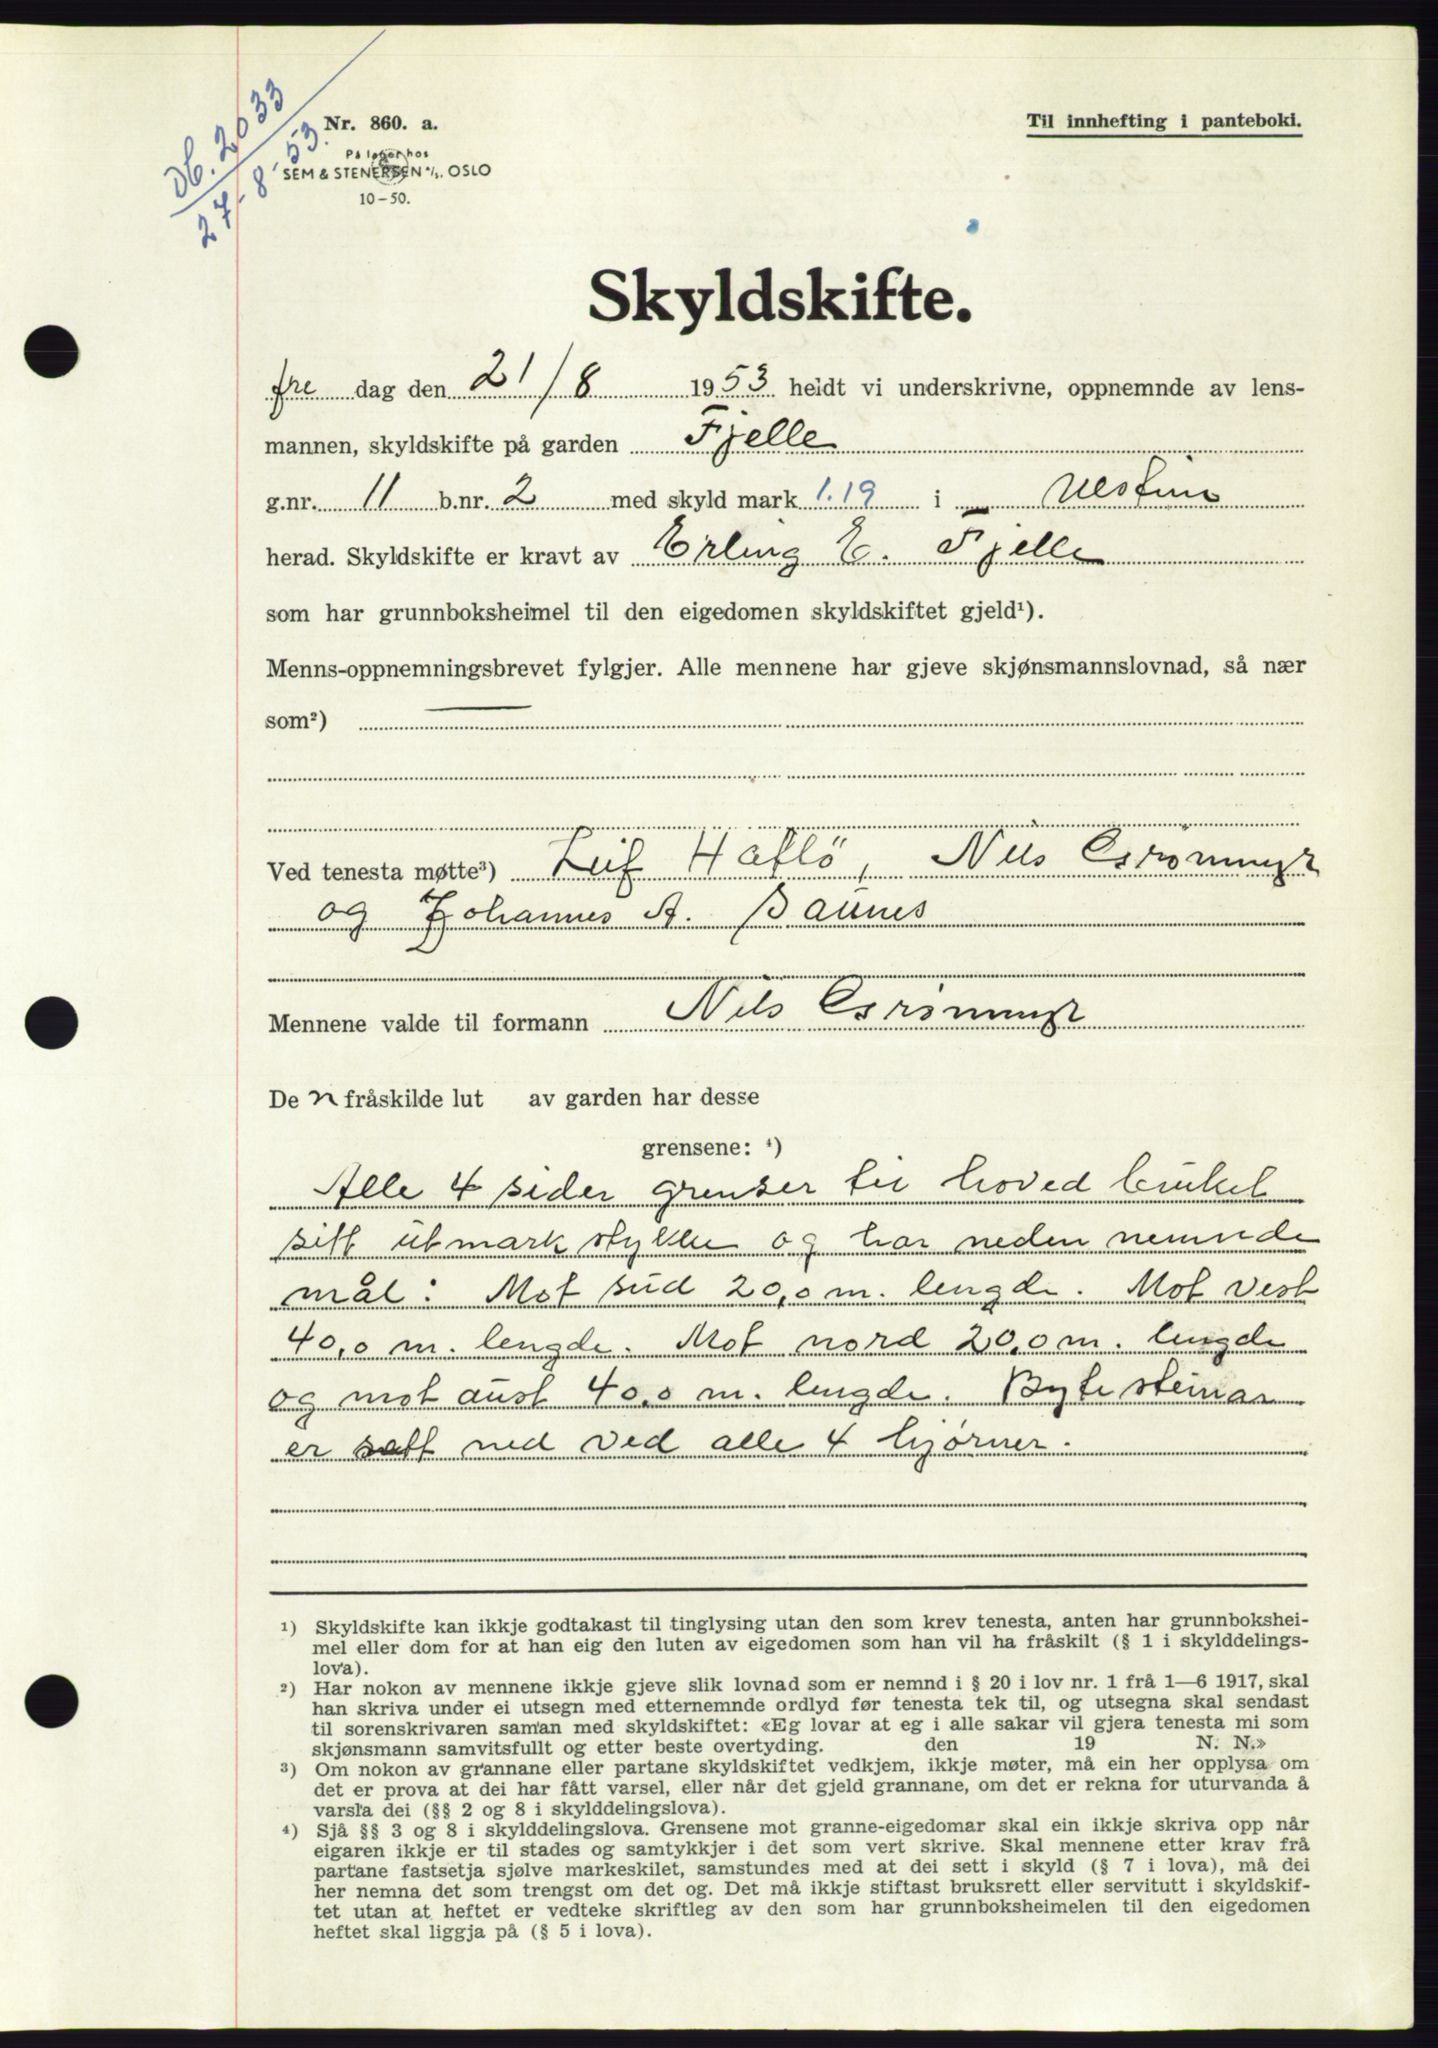 Db. 2033
27-8-53.
Nr. 860. a.
Til innhefting i panteboki.
På lager hos
SEM & STENERSEN A/S. OSLO
10-50.
Skyldskifte.
fre dag den 21/8 1953 heldt vi underskrivne, oppnemnde av lens-
mannen, skyldskifte på garden Fjelle
g.nr. 11 b.nr. 2 med skyld mark 1.19 i
herad. Skyldskifte er kravt av Erling E. Fjelle
som har grunnboksheimel til den eigedomen skyldskiftet gjeld¹).
Menns-oppnemningsbrevet fylgjer. Alle mennene har gjeve skjønsmannslovnad, så nær
som²)
Ved tenesta møtte³) Leif Haflö, Nils Grømmyr
og Johannes A. Saünes
Mennene valde til formann Nils Grømmyr
De n fråskilde lut av garden har desse
grensene: ⁴)
Alle 4 sider grenser til hoved brüket
sitt ütmark stykke og har neden nemnde
mål: Mot süd 20,0 m. lengde. Mot vest
40,0 m. lengde. Mot nord 20,0 m. lengde
og mot aust 40,0 m. lengde. Byte steinar
er satt ned ved alle 4 hjørner.
¹) Skyldskifte kan ikkje godtakast til tinglysing utan den som krev tenesta, anten har grunnbokshei-
mel eller dom for at han eig den luten av eigedomen som han vil ha fråskilt (§ 1 i skylddelings-
lova).
²) Har nokon av mennene ikkje gjeve slik lovnad som er nemnd i § 20 i lov nr. 1 frå 1—6 1917, skal
han skriva under ei utsegn med etternemnde ordlyd før tenesta tek til, og utsegna skal sendast
til sorenskrivaren saman med skyldskiftet: «Eg lovar at eg i alle sakar vil gjera tenesta mi som
skjønsmann samvitsfullt og etter beste overtyding. den 19 N. N.»
³) Om nokon av grannane eller partane skyldskiftet vedkjem, ikkje møter, må ein her opplysa om
det er prova at dei har fått varsel, eller når det gjeld grannane, om det er rekna for uturvanda å
varsla dei (§§ 2 og 8 i skylddelingslova).
⁴) Sjå §§ 3 og 8 i skylddelingslova. Grensene mot granne-eigedomar skal ein ikkje skriva opp når
eigaren ikkje er til stades og samtykkjer i det som vert skrive. Skal mennene etter krav frå
partane fastsetja sjølve markeskilet, samstundes med at dei sett i skyld (§ 7 i lova), må dei
her nemna det som trengst om det og. Det må ikkje stiftast bruksrett eller servitutt i skyldskif-
tet utan at heftet er vedteke skriftleg av den som har grunnboksheimelen til den eigedomen
heftet skal liggja på (§ 5 i lova).